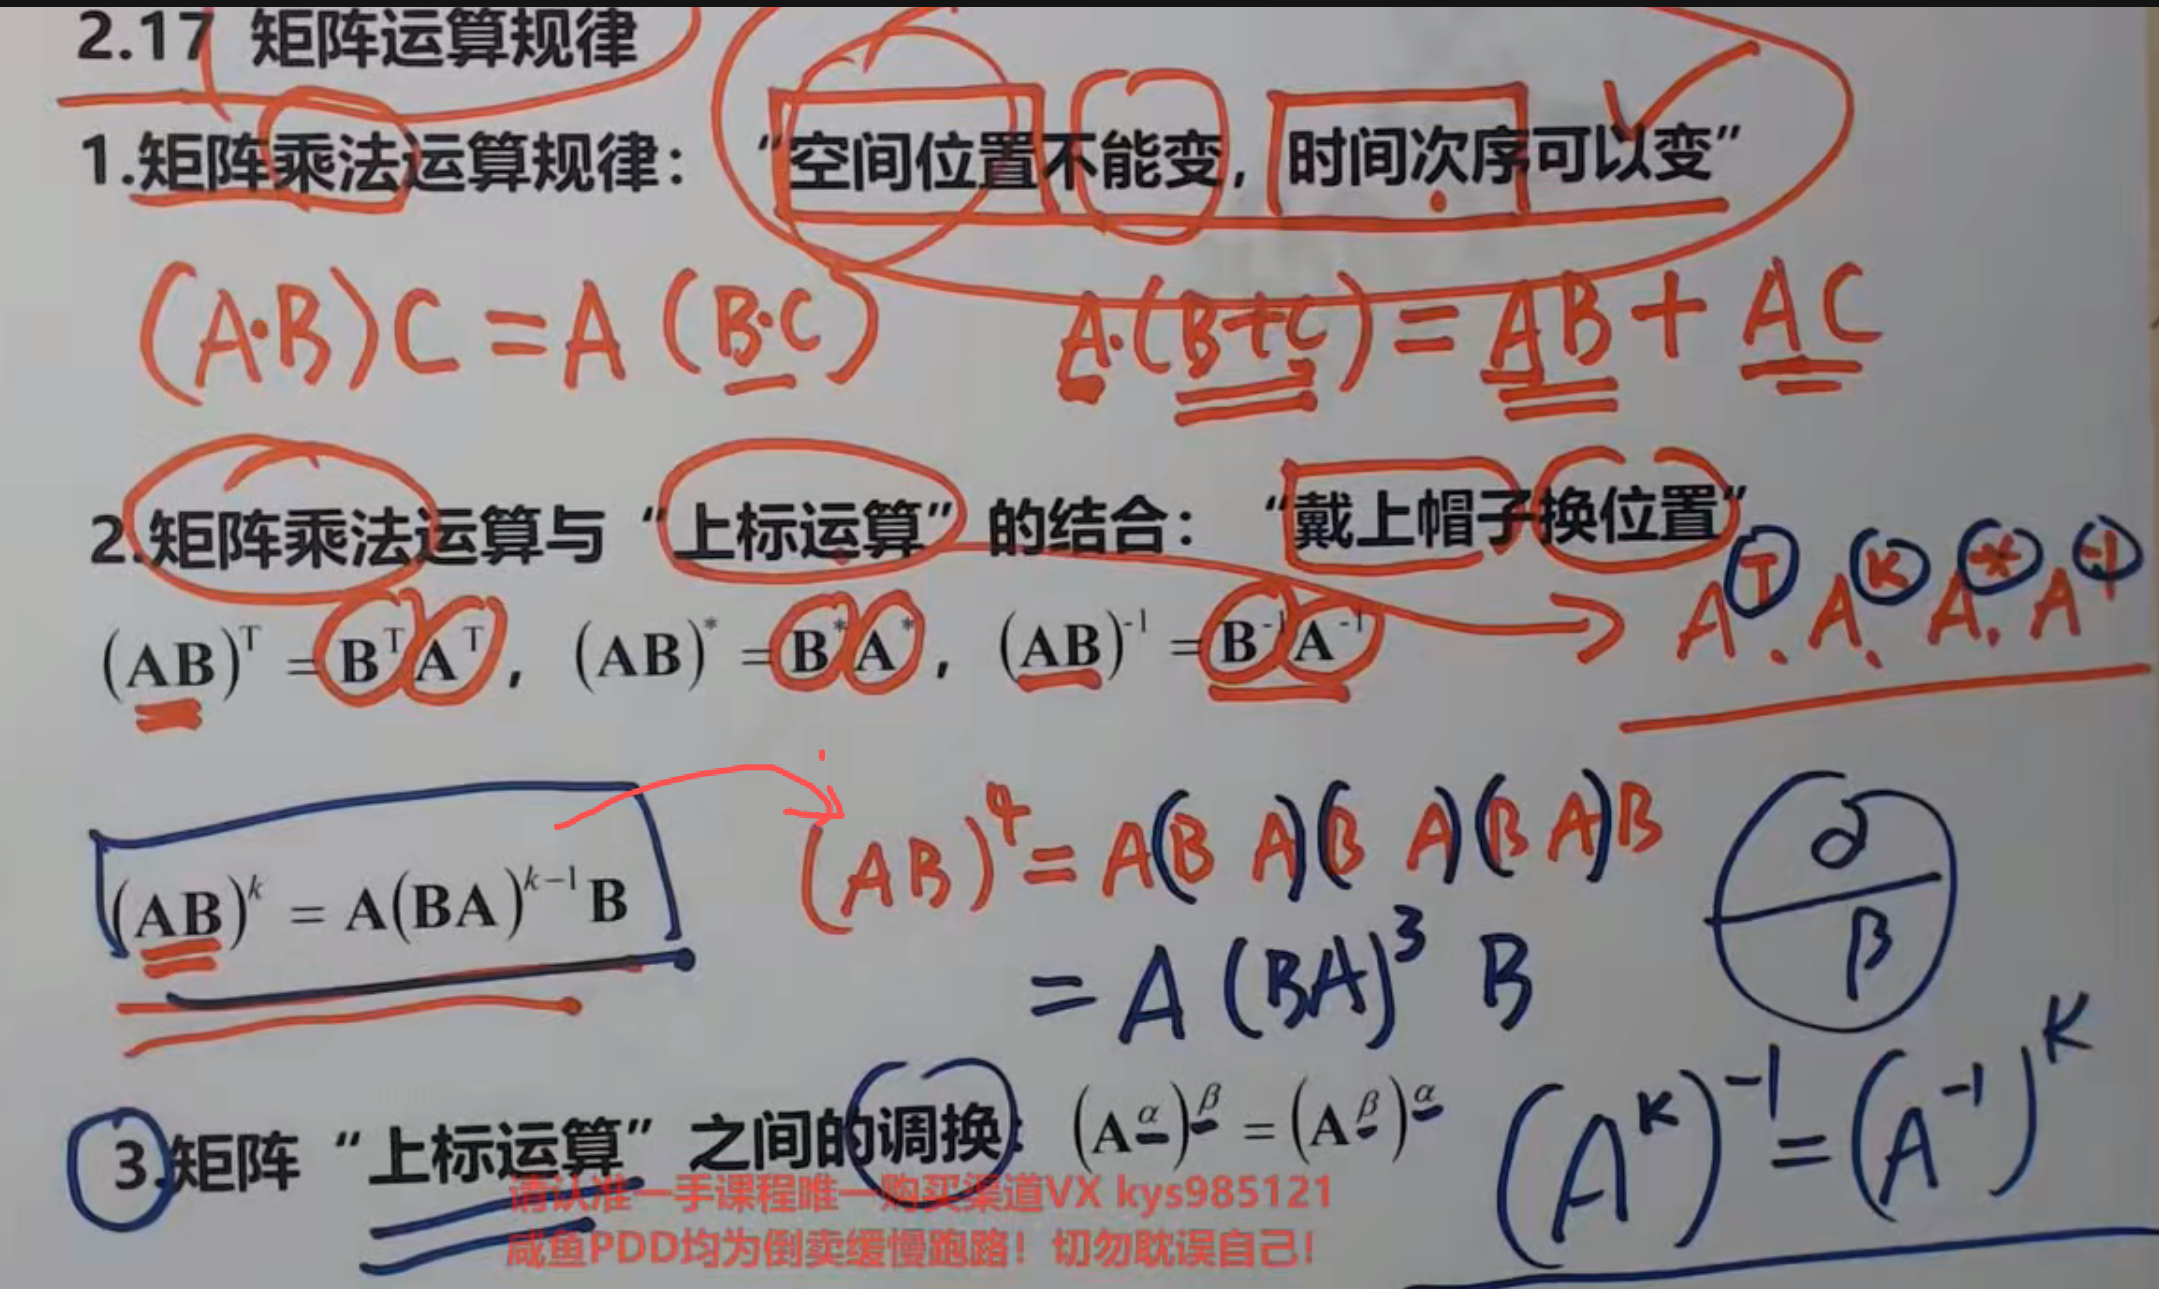 2.17 矩阵运算规律
1.矩阵乘法运算规律：“空间位置不能变，时间次序可以变”
(A·B)C=A(B·C) A·(B+C)=AB+AC
2.矩阵乘法运算与“上标运算”的结合：“戴上帽子换位置”
(AB)^T=B^T A^T，(AB)^*=B^*A^*，(AB)^-1=B^-1 A^-1 A^T. A^K. A^*. A^-1
(AB)^k=A(BA)^{k-1}B (AB)^4=A(BA)(BA)(BA)B
=A(BA)^3 B
α
β
3.矩阵“上标运算”之间的调换：(A^α)^β=(A^β)^α (A^K)^-1=(A^-1)^K
请认准一手课程唯一购买渠道VX kys985121
咸鱼PDD均为倒卖缓慢跑路！切勿耽误自己！